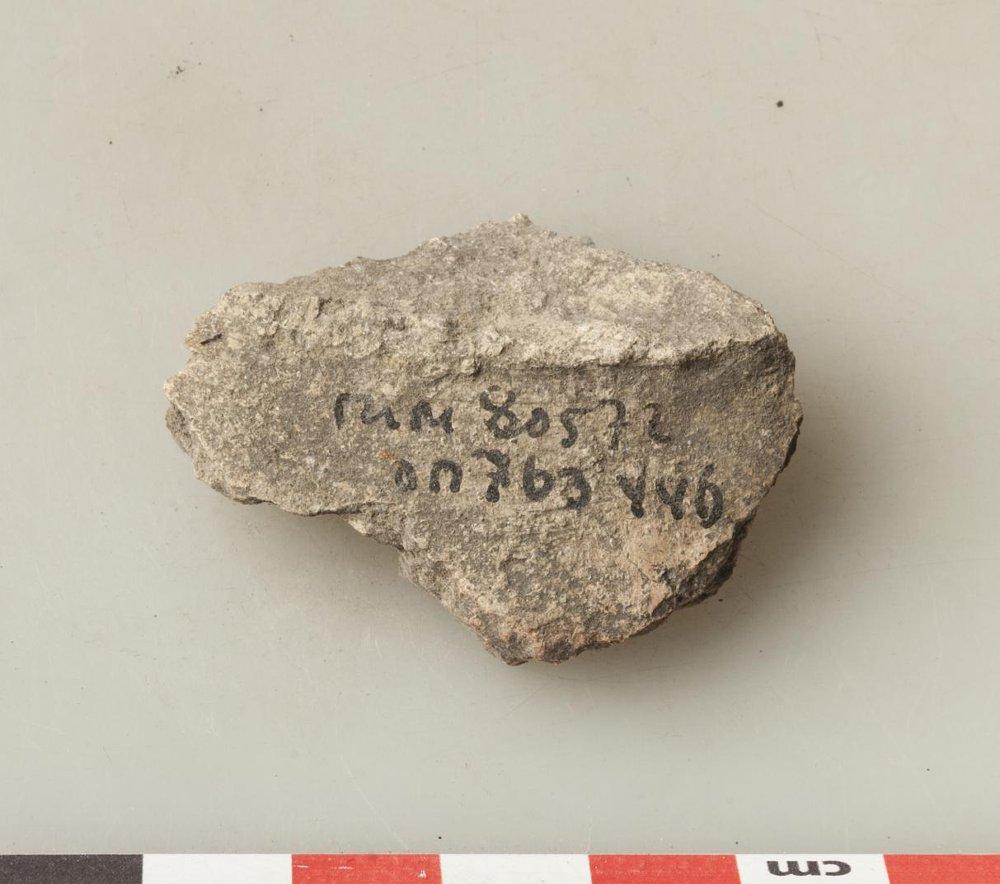 гим 80572
оп 763 446
cm